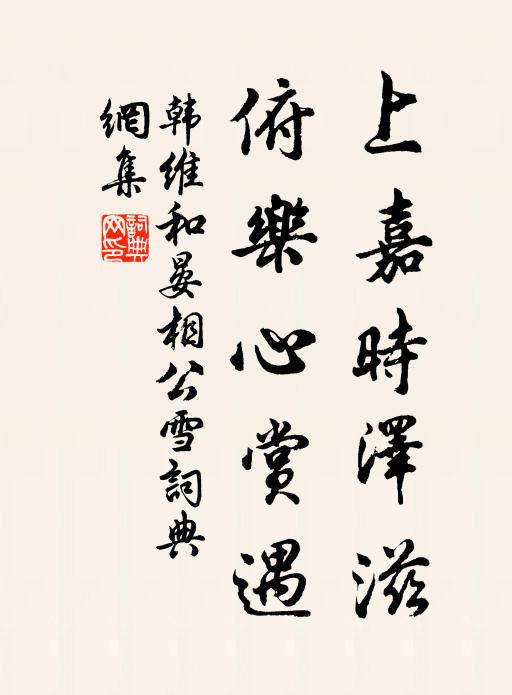 上嘉時澤滋
俯樂心賞遇
韩维和晏相公雪詞典
網集
詞典網印